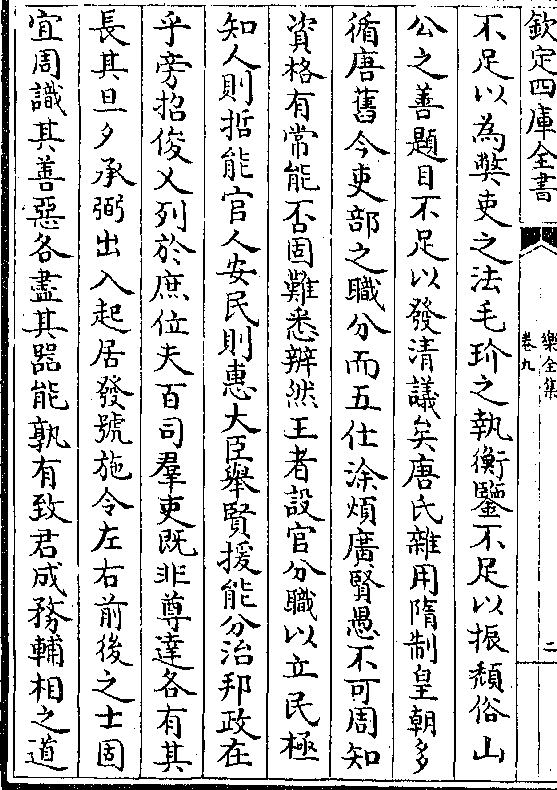 欽定四庫全書
樂全集
卷九
二
不足以為獘吏之法毛玠之執衡鑒不足以振頽俗山
公之善題目不足以發清議矣唐氏雜用隋制皇朝多
循唐舊今吏部之職分而五仕涂煩廣賢愚不可周知
資格有常能否固難悉辨然王者設官分職以立民極
知人則哲能官人安民則惠大臣舉賢援能分治邦政在
乎旁招俊乂列於庶位夫百司羣吏既非尊達各有其
長其旦夕承弼出入起居發號施令左右前後之士固
宜周識其善惡各盡其器能孰有致君成務輔相之道